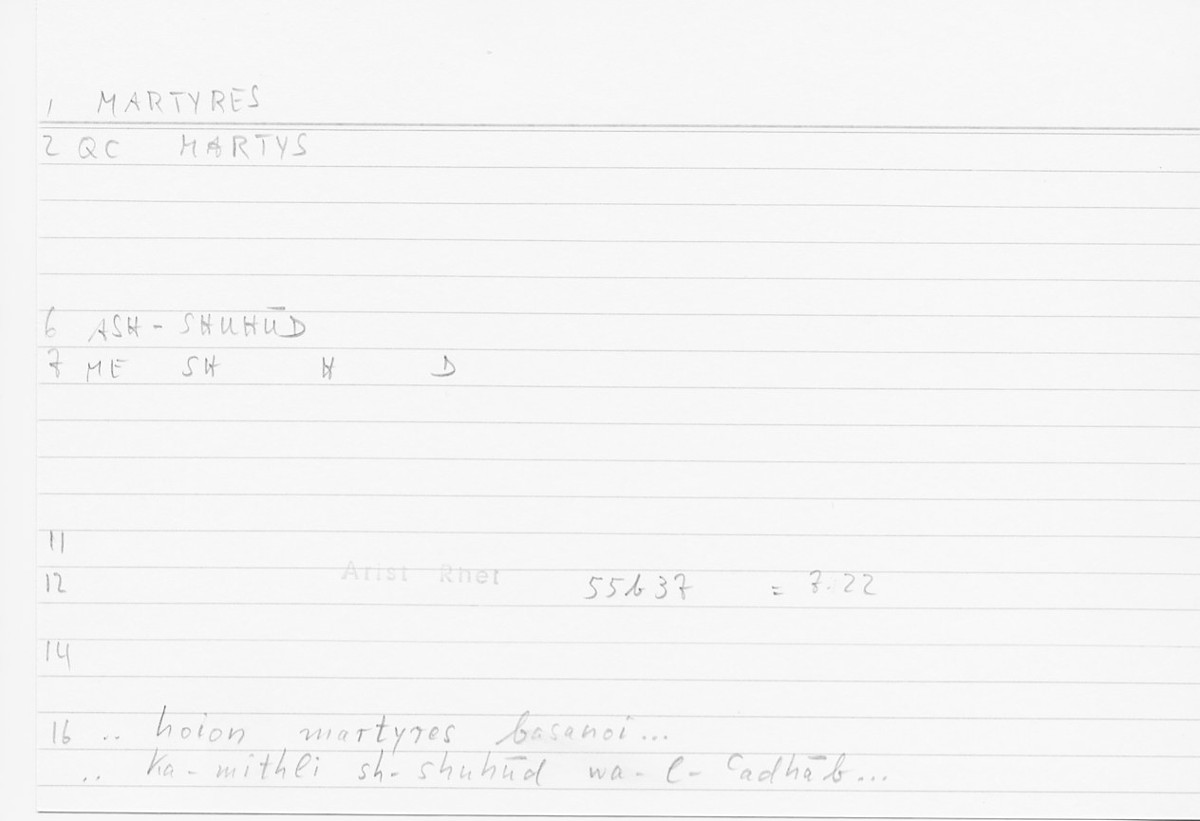 1 MARTYRES
2 QC MARTYS
6 ASH - SHUHŪD
7 ME SH H D
11
12 Arist Rhet 55b37 = 7.22
14
16 .. hoion martyres basanoi...
.. ka - mithli sh - shuhūd wa - l - ʿadhāb...